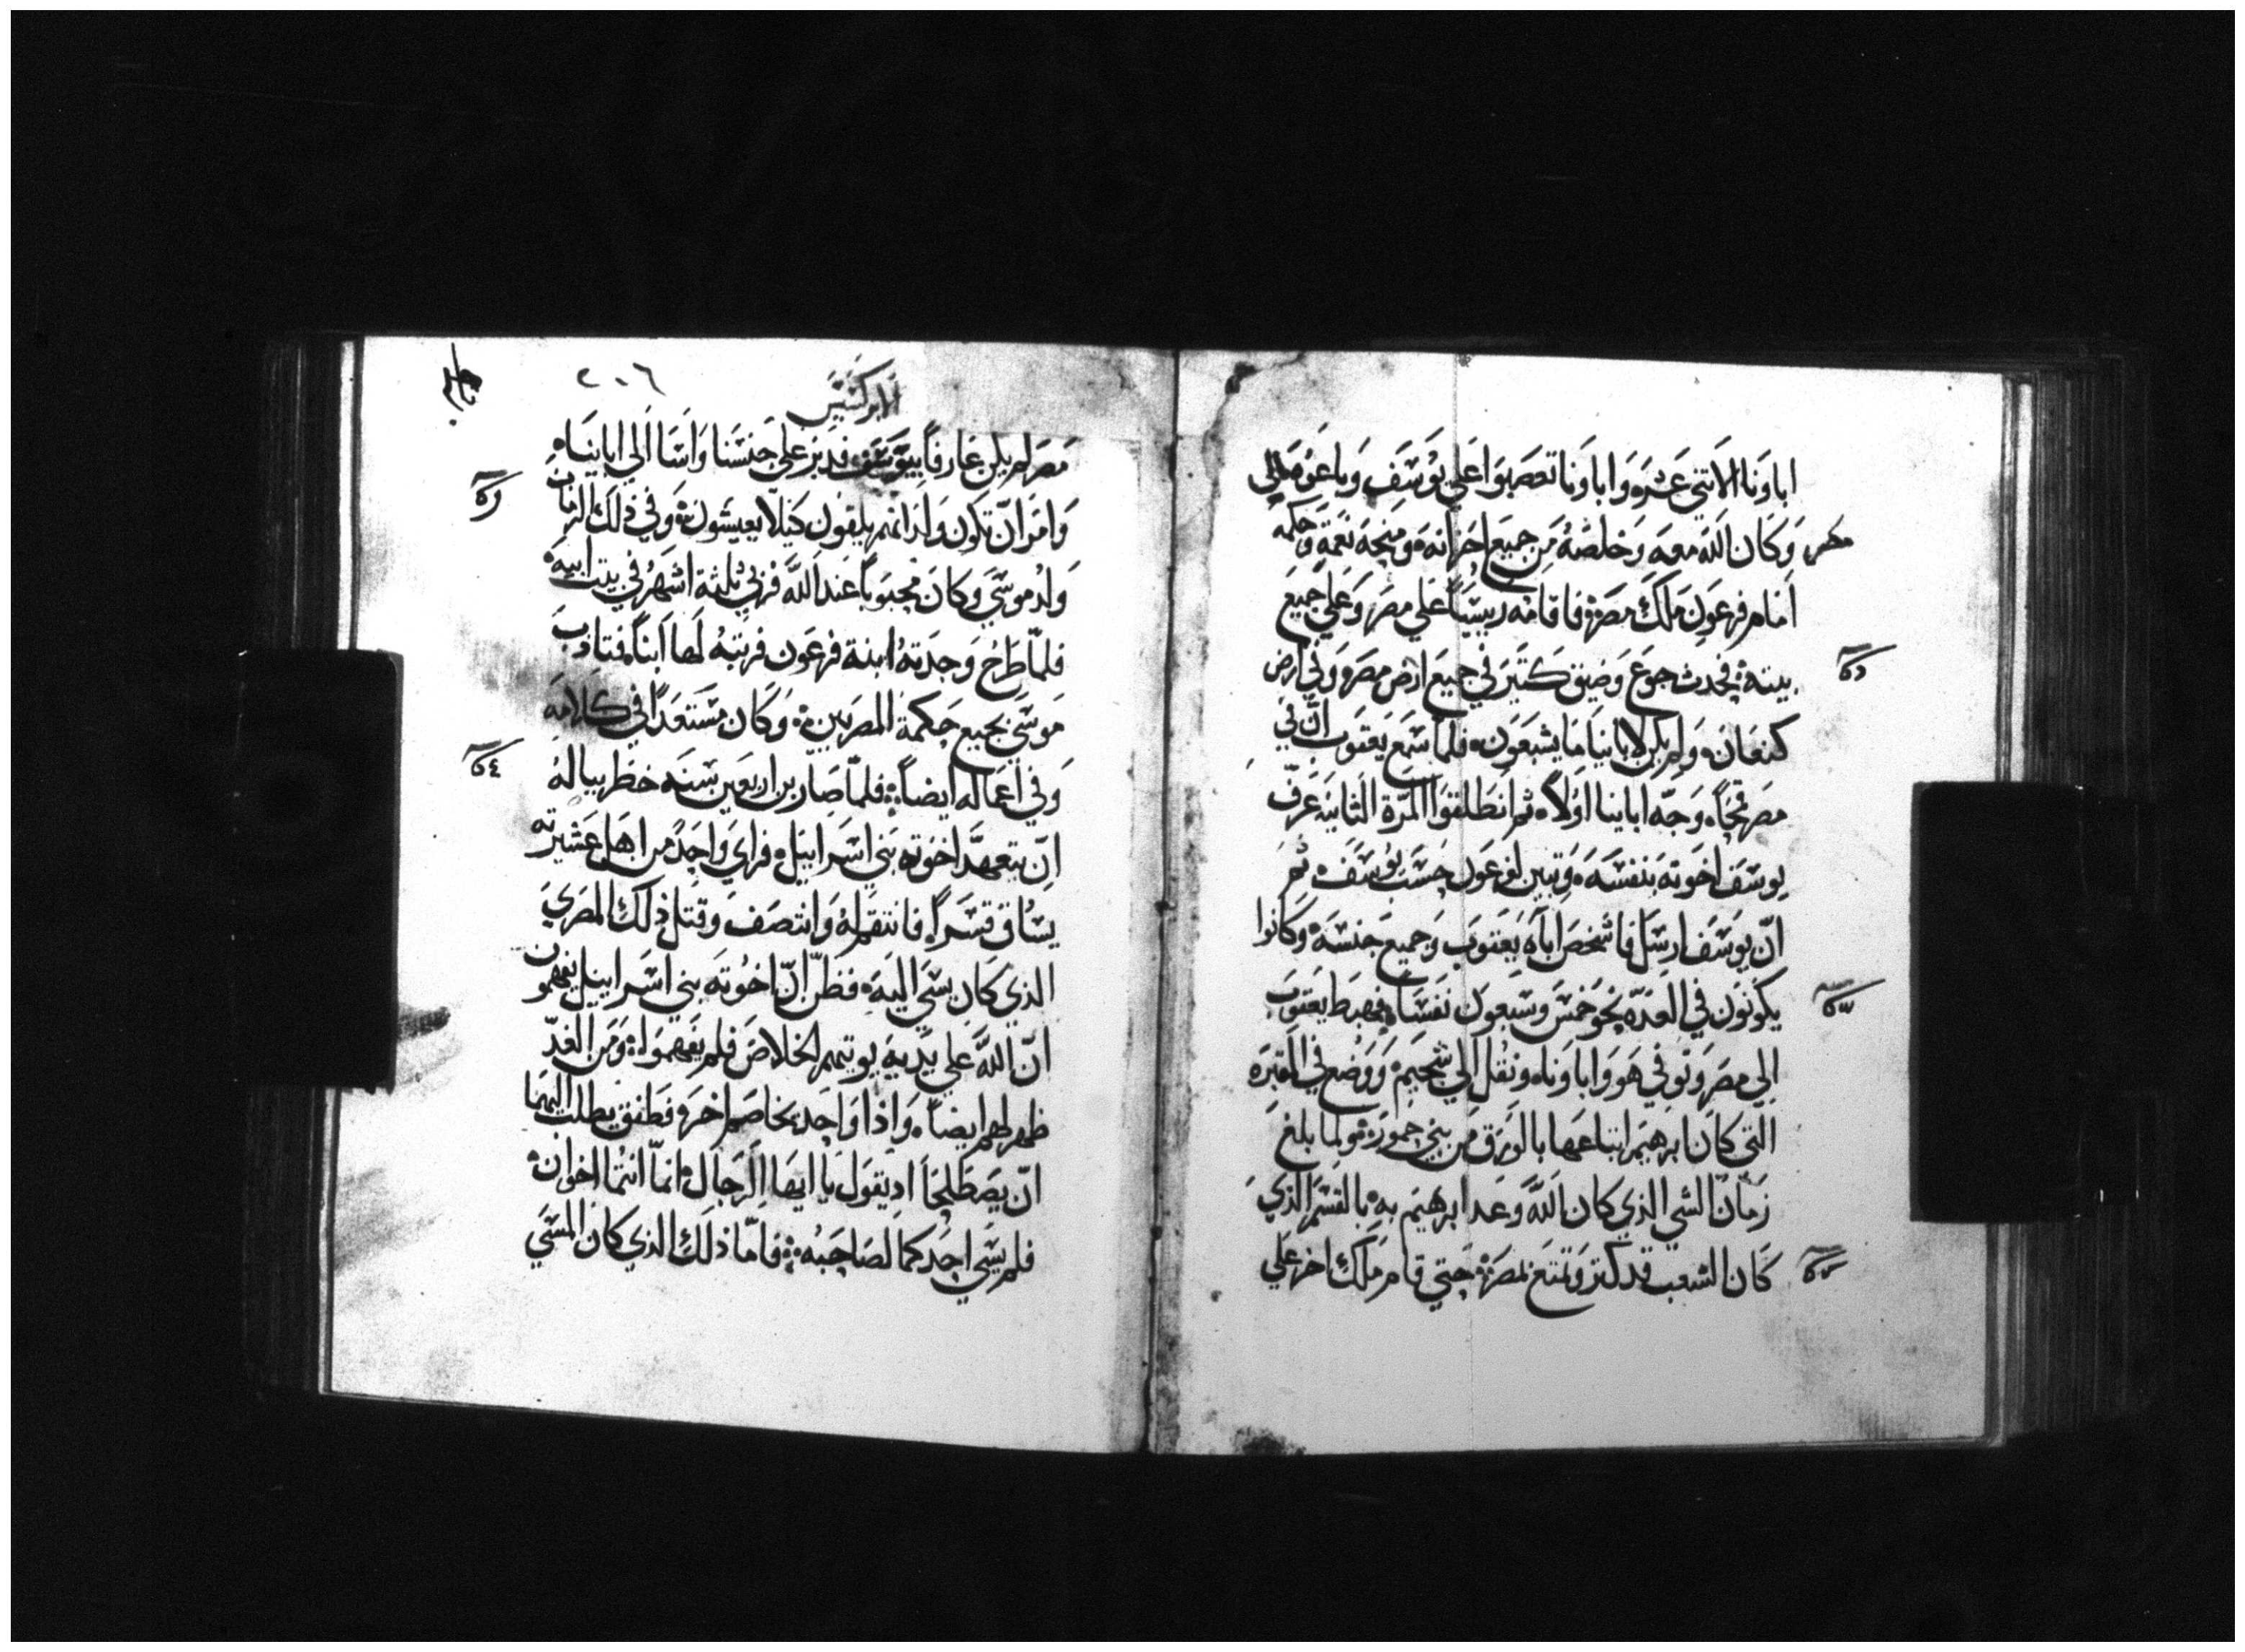 اباونا الاتني عشره واباونا تعصبوا علي يوسف وباعوه الي
مصر وكان الله معه وخلصه من جميع احزانه ومنحه نعمة وحكمه
امام فرعون ملك مصر فاقامه رييسًا علي مصر وعلي جميع
بيته فحدث جوع وضيق كتير في جميع ارض مصر وفي ارض
كنعان ولم يكن لاباينا ما يشبعون فلما سمع يعقوب ان في
مصر قمحًا وجه اباينا اولًا ثم انطلقوا المرة الثانيه عرف
يوسف اخوته بنفسه وتبين لفرعون حسب يوسف ثم
ان يوسف ارسل فاشخص اباه يعقوب وجميع جنسه وكانوا
يكونون في العده نحو خمس وسبعون نفسا فهبط يعقوب
الي مصر وتوفي هو واباونا ونقل الي شحيم ووضع في المقبره
التي كان ابرهيم ابتاعها بالورق من بني حمور ولما بلغ
زمان الشي الذي كان الله وعد ابرهيم به بالقسم الذي
كان الشعب قد كتر وتمتع بمصر حتي قام ملك اخر علي
٢٠٦
الابركسيس
مصر لم يكن عارفًا بيوسف فدبر علي جنسنا واسا الي اباينا
وامر ان تكون ولدانهم يلقون كيلا يعيشون وفي ذلك الزمان
ولد موسي وكان محبوبًا عند الله فربي ثلثة اشهر في بيت ابيه
فلما طرح وجدته ابنة فرعون فربته لها ابنًا فتادب
موسي بجميع حكمة المصريين وكان مستعدًا في كلامه
وفي اعماله ايضًا فلما صار بن اربعين سنه خطر بباله
ان يتعهد اخوته بني اسراييل فراي واحدًا من اهل عشيرته
يساق قسرًا فانتقم له وانتصف وقتل ذلك المصري
الذي كان يسي اليه فظن ان اخوته بني اسراييل يفهمون
ان الله علي يديه يوتيهم الخلاص فلم يفهموا ومن الغد
ظهر لهم ايضًا واذا واحد يخاصم اخر فطفق يطلب اليهما
ان يصطلحا اد يقول يا ايها الرجال انما انتما اخوان
فلم يسي احدكما لصاحبه فاما ذلك الذي كان المسي